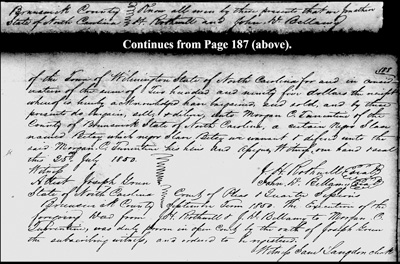 Brunswick County } Know all men by these presents that we Jonathan
State of North Carolina } H. Rothwell and John D. Bellamy
Continues from Page 187 (above).
188
of the Town of Wilmington State of North Carolina for and in consid
eration of the sum of Two hundred and ninety five dollars the receipt
whereof is hereby acknowledged have bargained and sold, and by these
presents do bargain, sell & deliver, unto Morgan C.
County of Brunswick State of North Carolina, a certain Negro Slave
named Betsy which negro Slave Betsy we warrant & defend unto the
said Morgan C. his heirs and assigns Witness our hand & seal
this 25th July 1850.
Witness
Attest Joseph Green
J. H. Rothwell Seal
John D. Bellamy Seal
State of North Carolina } Court of Pleas & Quarter Sessions
Brunswick County } September Term 1850. The Execution of the
foregoing Deed from J. H. Rothwell & J. D. Bellamy to Morgan C.
was duly proven in open Court by the oath of Joseph Green
the subscribing witness, and ordered to be registered.
Witness Saml Langdon clerk